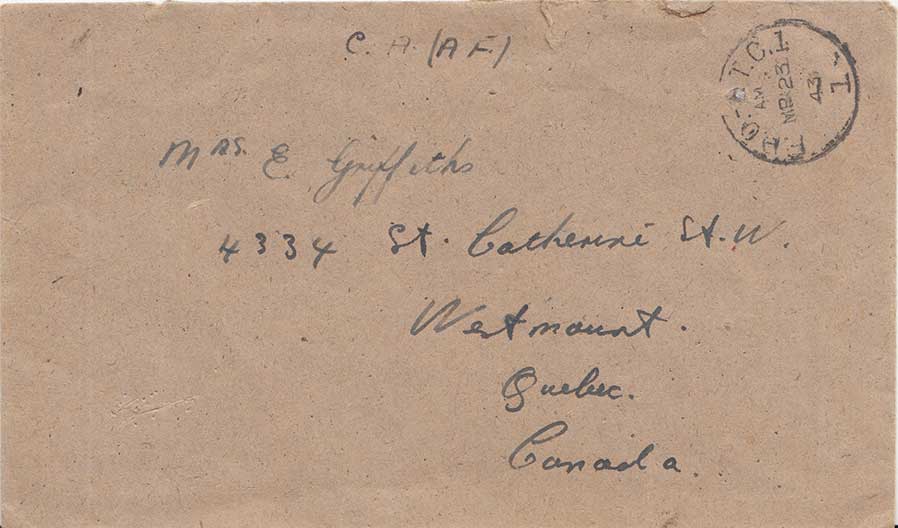 C. A. (A F.)
F.P.O.-T.C.1.
AM
MR 23
43
1
Mrs. E Griffiths
4334 St. Catherine St. W.
Westmount.
Quebec.
Canada.